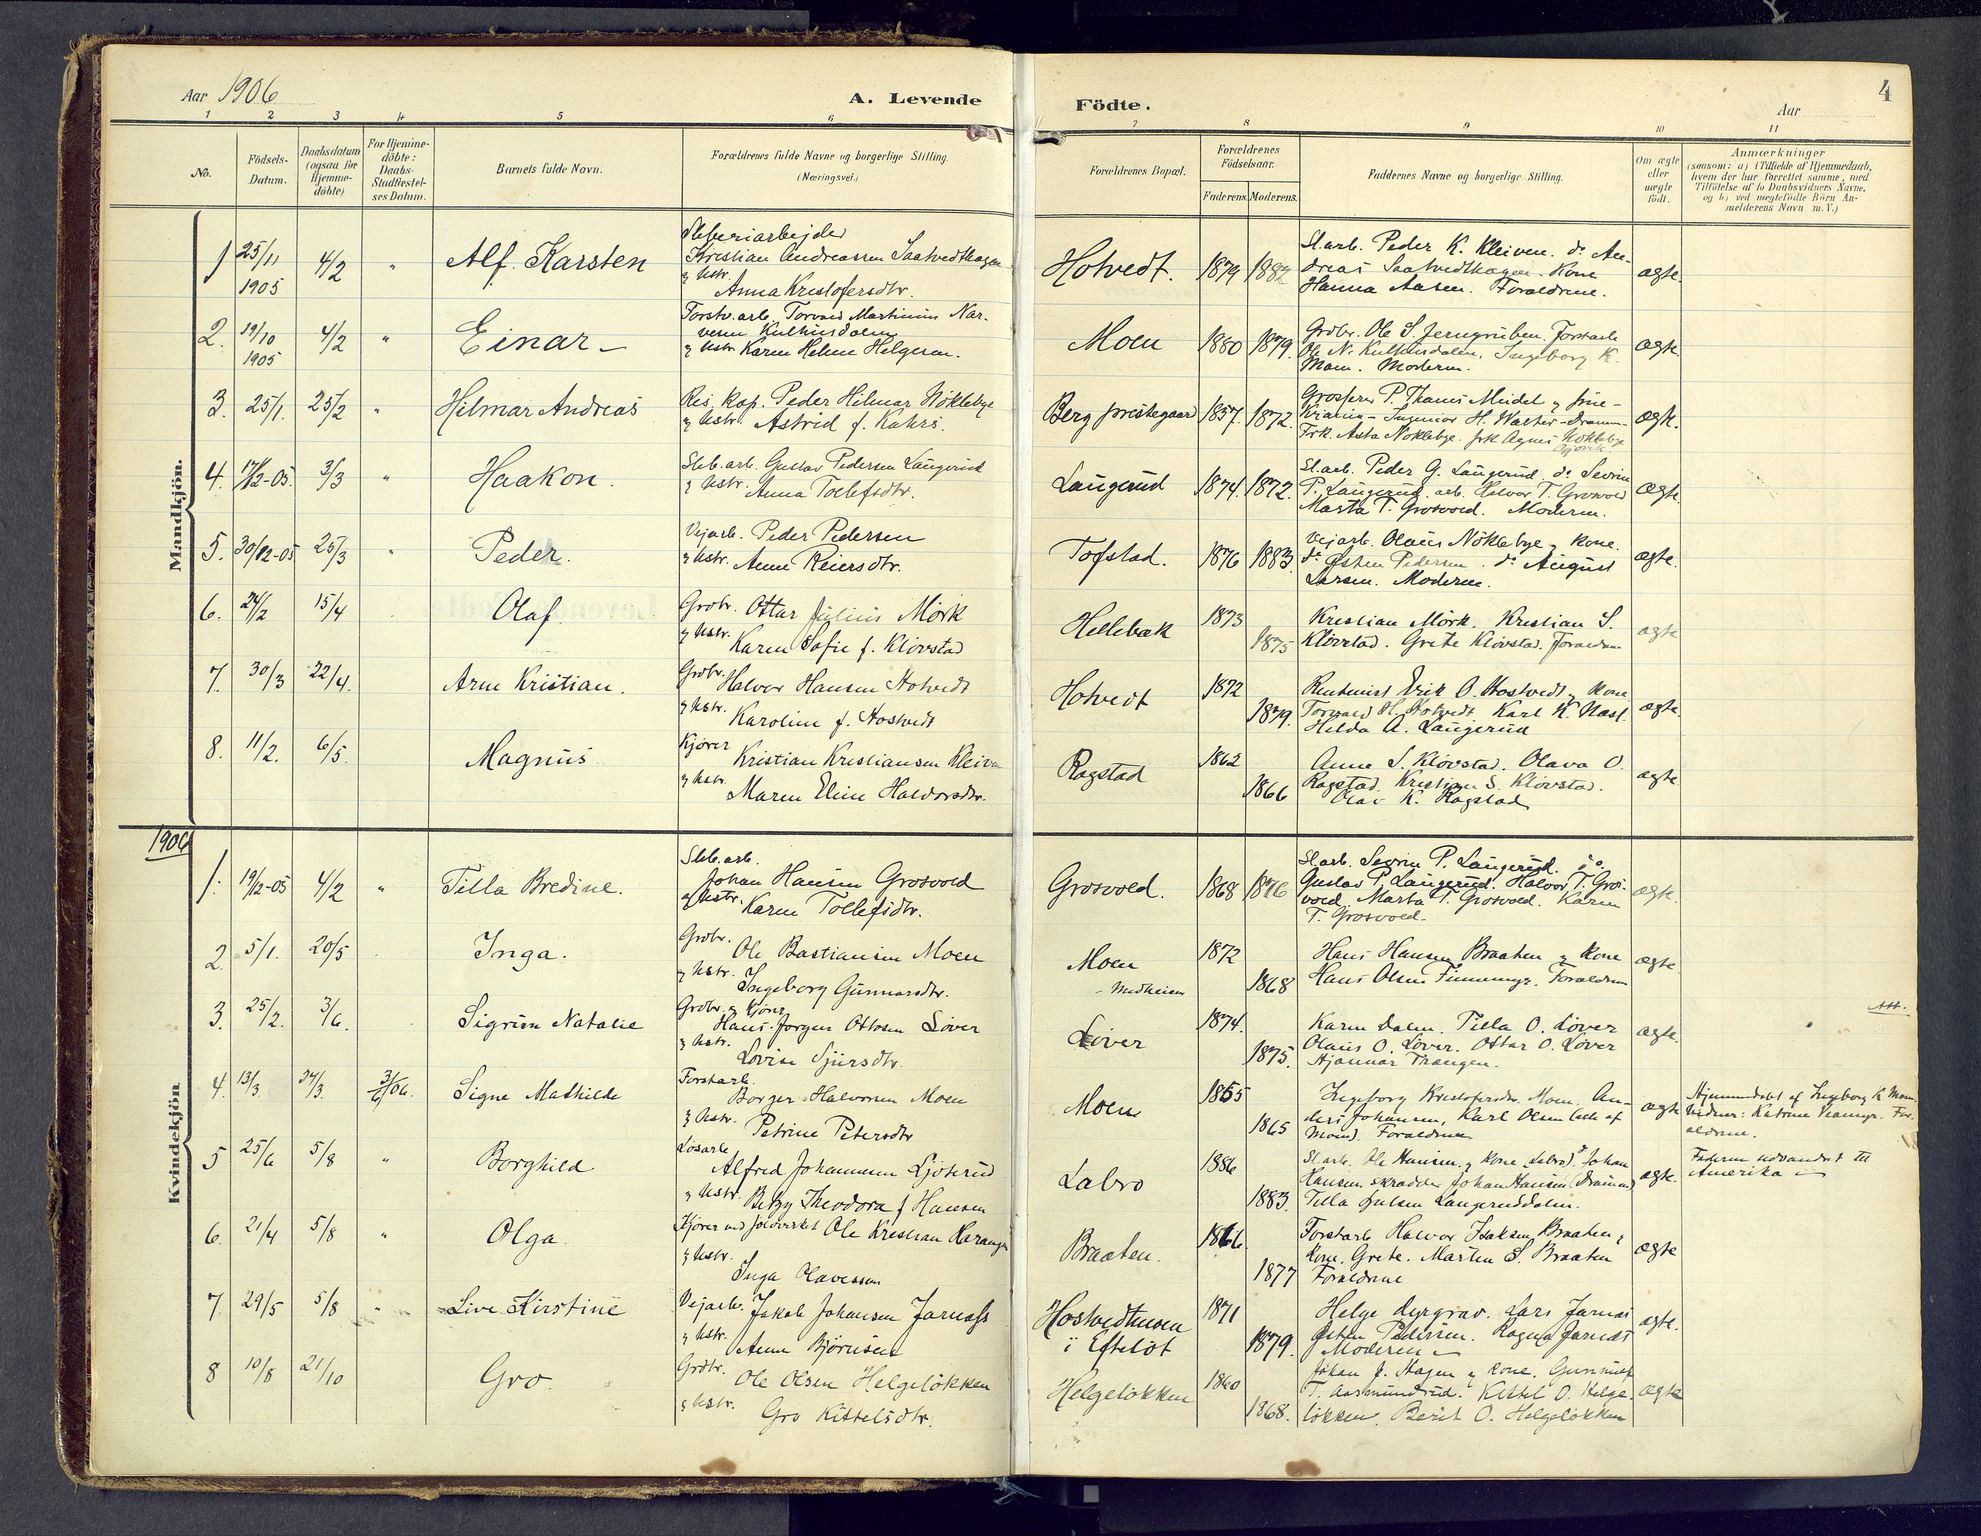 Aar 1906
A. Levende
Födte.
Aar
4
1 2 3 4 5 6 7 8 9 10 11
No.
Födsels-
Datum.
Daabsdatum
(ogsaa for
Hjemme-
döbte)
For Hjemme-
döbte:
Daabs-
Stadfæstel-
ses Datum.
Barnets fulde Navn.
Forældrenes fulde Navne og borgerlige Stilling.
(Næringsvei.)
Forældrenes Bopæl.
Forældrenes
Födselsaar.
Faderens. Moderens.
Faddernes Navne og borgerlige Stilling.
Om ægte
eller
uægte
födt.
Anmærkninger
(saasom: a) i Tilfælde af Hjemmedaab,
hvem der har forrettet samme, med
Tilföielse af to Daabsvidners Navne,
og b) ved uægtefödte Börn An-
melderens Navn m. V.)
Mandkjön.
1 25/11 1905 4/2 " Alf. Karsten
Kristian Andreassen Saatvedthagen
& Hstr. Anna Kristofersdtr.
Hotvedt. 1879 1882
Sl.arb. Peder K. Kleiven. do An-
dreas Saatvedthagen. Kone
Hanna Aasen. Forældrene.
ægte.
2. 19/10 1905 4/2 " Einar
Forstv. arb. Torvald Martinius Nar-
vesen Kulhusdalen
& Hstr. Karen Helene Helgesen.
Moen 1880 1879.
Grdbr. Ole S. Jerngruben. Forstarb.
Ole N. Kulhusdalen, Ingeborg K.
Moen. Moderen.
ægte.
3. 25/1. 25/2 " Hilmar Andreas
Res. kap. Peder Hilmar Nöklebye
& Hstr. Astrid f. Kahrs.
Berg prestegaard 1857. 1872.
Grosserer P. Thams Meidel & frue -
Ingeniör H. Walter - Dramm-
Frk. Asta Nöklebye. frk Agnes Nöklebye
ægte.
4. 17/12-05. 3/3 " Haakon.
Slb. arb. Gustav Pedersen Laugerud
& Hstr. Anna Tollefsdtr.
Laugerud 1874. 1872.
Sl.arb. Peder G. Laugerud. do Sevrin
P. Laugerud. arb. Halvor T. Grosvold
Marta T. Grosvold. Moderen.
ægte.
5. 30/12-05 25/3 " Peder.
Vejarb. Peder Pedersen
& Hstr. Anne Reiersdtr.
Tofstad. 1876 1883.
Vejarb. Olaus Nöklebye & kone.
do Östen Pedersen. do August
Larsen. Moderen.
ægte.
6. 24/2 15/4 Olaf
Grdbr. Ottar Julius Mörk
& Hstr. Karen Sofie f. Klövstad
Hellebæk 1873 1875
Kristian Mörk. Kristian S.
Klövstad. Grete Klövstad. Forældrene
ægte
7. 30/3 22/4. Arne Kristian.
Grdbr. Halvor Hansen Hotvedt
& Hstr. Karoline f. Hostvedt
Hotvedt 1872 1879.
Rentenist Erik O. Hostvedt & kone
Torvald H. Hotvedt Karl K. Næsl.
Hilda A. Laugerud
ægte.
8. 11/2. 6/5. Magnus
Kjörer Kristian Kristiansen Kleiven
& Hstr. Maren Eline Halvorsdtr.
Rogstad 1862 1866
Anne S. Klövstad. Olava O.
Rogstad. Kristian S. Klövstad.
Olav K. Rogstad
ægte
1906
Kvindekjön
1. 19/12-05 4/2 " Tilla Bredine.
Slb. arb.
Johan Hansen Grosvold
& Hstr. Karen Tollefsdtr.
Grosvold. 1868 1876
Sl.arb. Sevrin P. Laugerud. do
Gustav P. Laugerud. Halvor T. Gros-
vold. Marta T. Grosvold. Karen
T. Grosvold.
ægte.
2. 5/1. 20/5 Inga.
Grdbr. Ole Bastiansen Moen
& Hstr. Ingeborg Gunnarsdtr.
Moen
- Medheien
1872 1868
Hans Hansen Braaten & kone
Hans Olsen Forældrene
ægte.
3. 25/2. 3/6. Sigrun Natalie
Grdbr. &
Hans Jörgen Ottosen Löver
& Hstr. Lovise Sjursdtr.
Löver 1874. 1875.
Karen Dalen. Tilla O. Löver
Olaus O. Löver. Ottar O. Löver
Hjalmar Trængen.
ægte.
Att.
4. 13/3. 24/3. 3/6 06. Signe Mathilde
Forstarb.
Borger Halvorsen Moen
& Hstr. Petrine Petersdtr
Moen 1865 1865
Ingeborg Kristofersdtr. Moen. An-
ders Johansen, Karl Olsen (alle af
Moen). Forældrene
ægte
Hjemmedøbt af Ingeborg K Moen
Vidner: Katrine For-
ældrene.
5 25/6 5/8 " Borghild
Lösarb.
Alfred Johannesen Ljöterud
& Hstr. Betzy Theodora f Hansen
Labro 1886 1883.
Sl. arb. Ole Hansen & kone (Labro). Johan
Hansen skrædder Johan Hansen (Drammen)
Tilla Julsen Laugeruddalen.
ægte.
Faderen udvandret til
Amerika
6. 21/4 5/8 " Olga.
Kjörer ved Sølvverket Ole Kristian
& Hstr. Inga Olavessen
Braaten. 1866 1877
Forstarb Halvor Isaksen Braaten &
kone. Grete. Marten S. Braaten
Forældrene
ægte
7. 29/5 5/8 " Live Kirstine
Vejarb. Jakob Johansen Jarnæss
& Hstr. Anne Björnsen
Hostvedtmoen
i Efteløt
1871 1879.
Helge Dyrgrav. Lars Jarnæs
Östen Pedersen. Ragna Jarnæs
Moderen
ægte.
8 10/8 21/10 Gro.
Grdbr. Ole Olsen Helgelökken
& Hstr. Gro Kittelsdtr.
Helgelökken 1860 1868.
Johan J. Hagen & kone. Gunnulf
T. Aasmundrud. Kittel O. Helge-
lökken. Berit O. Helgelökken
ægte